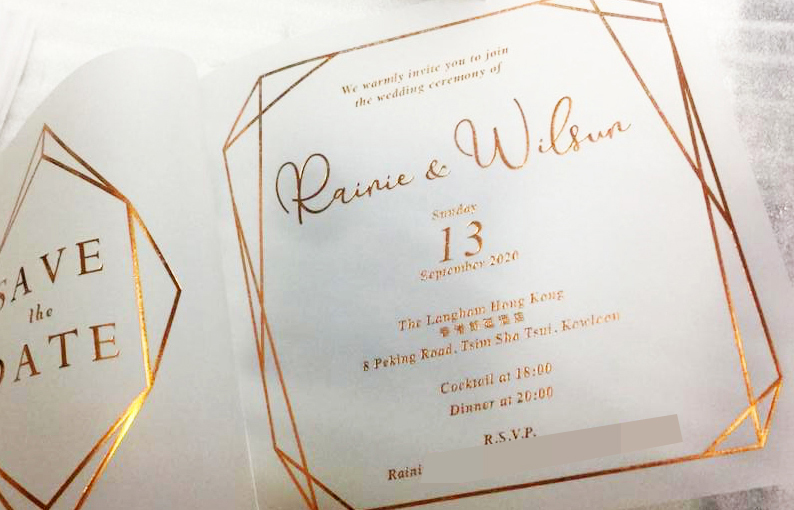 SAVE
the
DATE
We warmly invite you to join
the wedding ceremony of
Rainie & Wilsun
Sunday
13
September 2020
The Langham Hong Kong
香港朗廷酒店
8 Peking Road, Tsim Sha Tsui, Kowloon
Cocktail at 18:00
Dinner at 20:00
R.S.V.P.
Raini